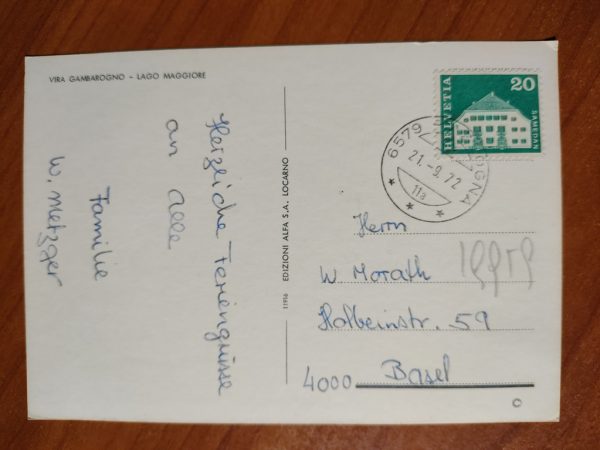 VIRA GAMBAROGNO – LAGO MAGGIORE
Herzliche Feriengrüsse
an alle
Familie
W. Metzger
11916 EDIZIONI ALFA S.A., LOCARNO
HELVETIA
20
SAMEDAN
6579
21.-9.72
11a
Herrn
W Morath
Holbeinstr. 59
4000 Basel
©